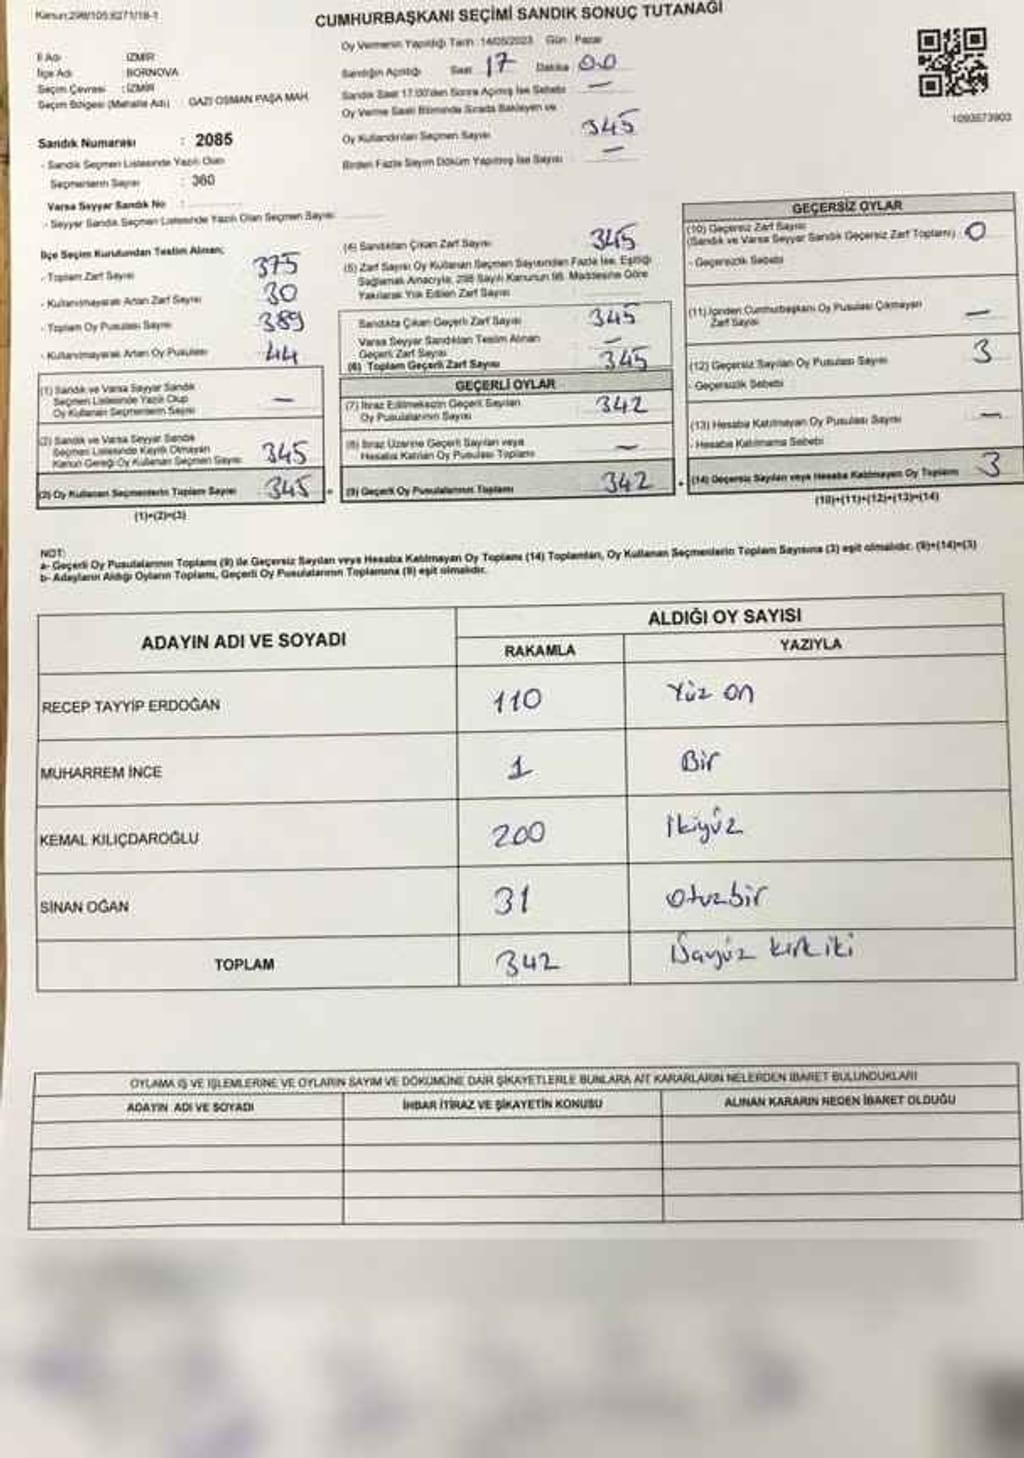 Kanun:298/105;6271/18-1
CUMHURBAŞKANI SEÇİMİ SANDIK SONUÇ TUTANAĞI
İl Adı : İZMİR
İlçe Adı : BORNOVA
Seçim Çevresi : İZMİR
Seçim Bölgesi (Mahalle Adı) GAZİ OSMAN PAŞA MAH.
Oy Vermenin Yapıldığı Tarih : 14/05/2023 Gün : Pazar
Sandığın Açıldığı Saat 17 Dakika 00
Sandık Saat 17:00'den Sonra Açılmış İse Sebebi —
Oy Verme Saati Bitiminde Sırada Bekleyen ve
Oy Kullandırılan Seçmen Sayısı 345
Birden Fazla Sayım Döküm Yapılmış İse Sayısı —
1093573903
Sandık Numarası : 2085
- Sandık Seçmen Listesinde Yazılı Olan
Seçmenlerin Sayısı : 360
Varsa Seyyar Sandık No :
- Seyyar Sandık Seçmen Listesinde Yazılı Olan Seçmen Sayısı:
İlçe Seçim Kurulundan Teslim Alınan;
- Toplam Zarf Sayısı 375
- Kullanılmayarak Artan Zarf Sayısı 30
- Toplam Oy Pusulası Sayısı 389
- Kullanılmayarak Artan Oy Pusulası 44
(1) Sandık ve Varsa Seyyar Sandık
Seçmen Listesinde Yazılı Olup
Oy Kullanan Seçmenlerin Sayısı —
(2) Sandık ve Varsa Seyyar Sandık
Seçmen Listesinde Kayıtlı Olmayan
Kanun Gereği Oy Kullanan Seçmen Sayısı 345
(3) Oy Kullanan Seçmenlerin Toplam Sayısı 345
(1)+(2)=(3)
(4) Sandıktan Çıkan Zarf Sayısı 345
(5) Zarf Sayısı Oy Kullanan Seçmen Sayısından Fazla İse, Eşitliği
Sağlamak Amacıyla, 298 Sayılı Kanunun 98. Maddesine Göre
Yakılarak Yok Edilen Zarf Sayısı
Sandıkta Çıkan Geçerli Zarf Sayısı 345
Varsa Seyyar Sandıktan Teslim Alınan
Geçerli Zarf Sayısı —
(6) Toplam Geçerli Zarf Sayısı 345
GEÇERLİ OYLAR
(7) İtiraz Edilmeksizin Geçerli Sayılan
Oy Pusulalarının Sayısı 342
(8) İtiraz Üzerine Geçerli Sayılan veya
Hesaba Katılan Oy Pusulası Toplamı —
= (9) Geçerli Oy Pusulalarının Toplamı 342
GEÇERSİZ OYLAR
(10) Geçersiz Zarf Sayısı
(Sandık ve Varsa Seyyar Sandık Geçersiz Zarf Toplamı) 0
- Geçersizlik Sebebi
(11) İçinden Cumhurbaşkanı Oy Pusulası Çıkmayan
Zarf Sayısı —
(12) Geçersiz Sayılan Oy Pusulası Sayısı 3
- Geçersizlik Sebebi
(13) Hesaba Katılmayan Oy Pusulası Sayısı —
- Hesaba Katılmama Sebebi
+ (14) Geçersiz Sayılan veya Hesaba Katılmayan Oy Toplamı 3
(10)+(11)+(12)+(13)=(14)
NOT:
a- Geçerli Oy Pusulalarının Toplamı (9) ile Geçersiz Sayılan veya Hesaba Katılmayan Oy Toplamı (14) Toplamları, Oy Kullanan Seçmenlerin Toplam Sayısına (3) eşit olmalıdır. (9)+(14)=(3)
b- Adayların Aldığı Oyların Toplamı, Geçerli Oy Pusulalarının Toplamına (9) eşit olmalıdır.
ADAYIN ADI VE SOYADI
ALDIĞI OY SAYISI
RAKAMLA YAZIYLA
RECEP TAYYİP ERDOĞAN 110 Yüz on
MUHARREM İNCE 1 Bir
KEMAL KILIÇDAROĞLU 200 İkiyüz
SİNAN OĞAN 31 Otuzbir
TOPLAM 342 kırk iki
OYLAMA İŞ VE İŞLEMLERİNE VE OYLARIN SAYIM VE DÖKÜMÜNE DAİR ŞİKAYETLERLE BUNLARA AİT KARARLARIN NELERDEN İBARET BULUNDUKLARI
ADAYIN ADI VE SOYADI İHBAR İTİRAZ VE ŞİKAYETİN KONUSU ALINAN KARARIN NEDEN İBARET OLDUĞU